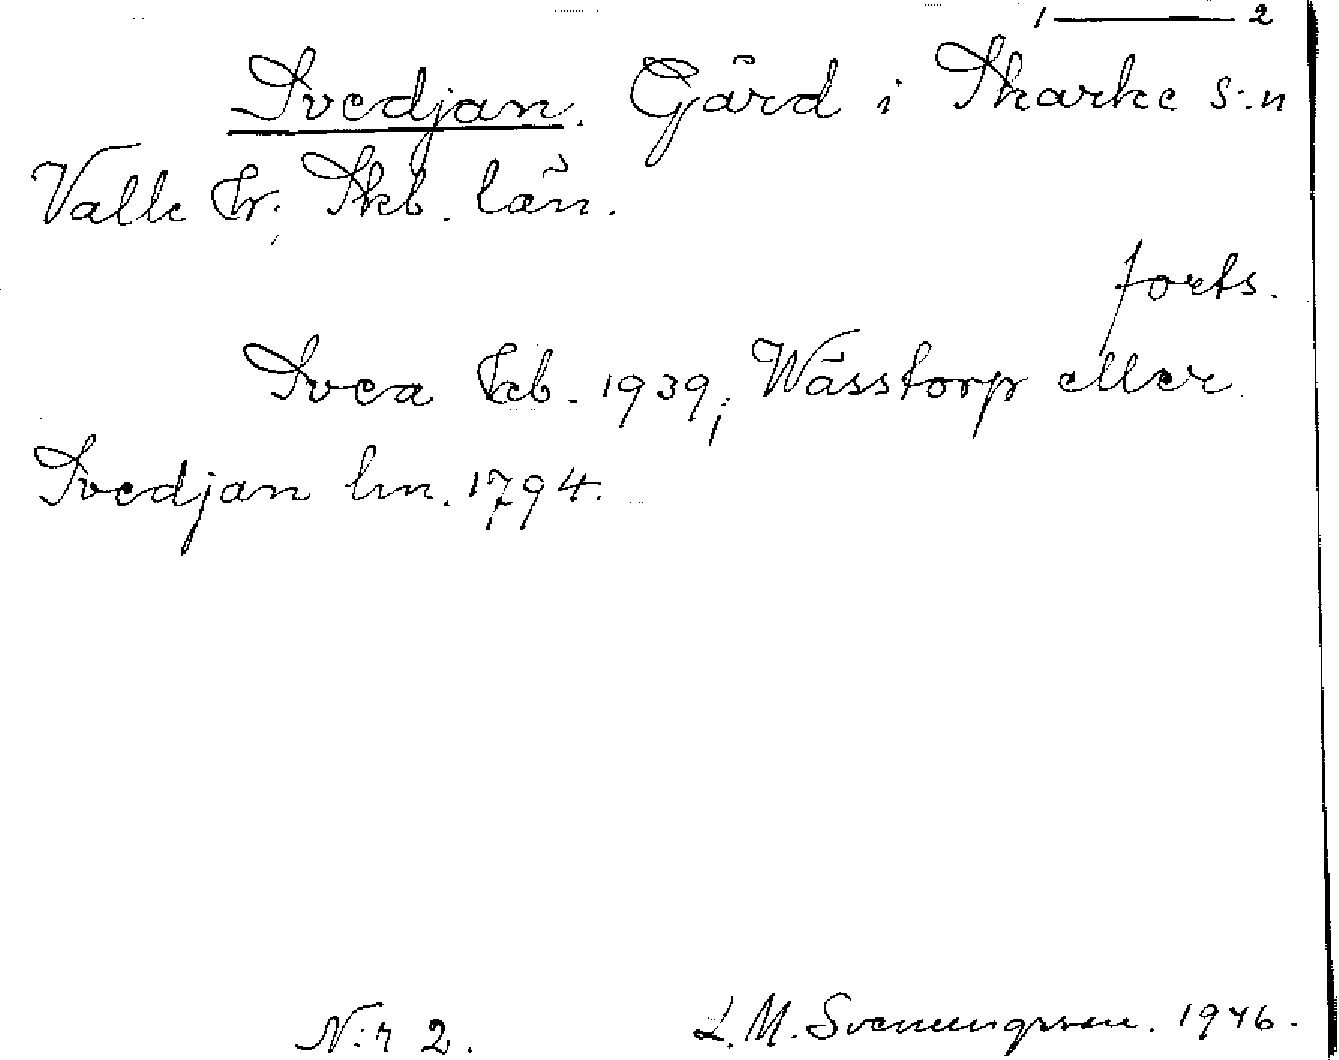 1 — 2
Svedjan. Gård i Skarke s:n
Valle hr; Skb. län.
forts.
Svea kb. 1939; Wässtorp eller
Svedjan hn. 1794.
N:r 2. L. M. Svenungsson. 1946.